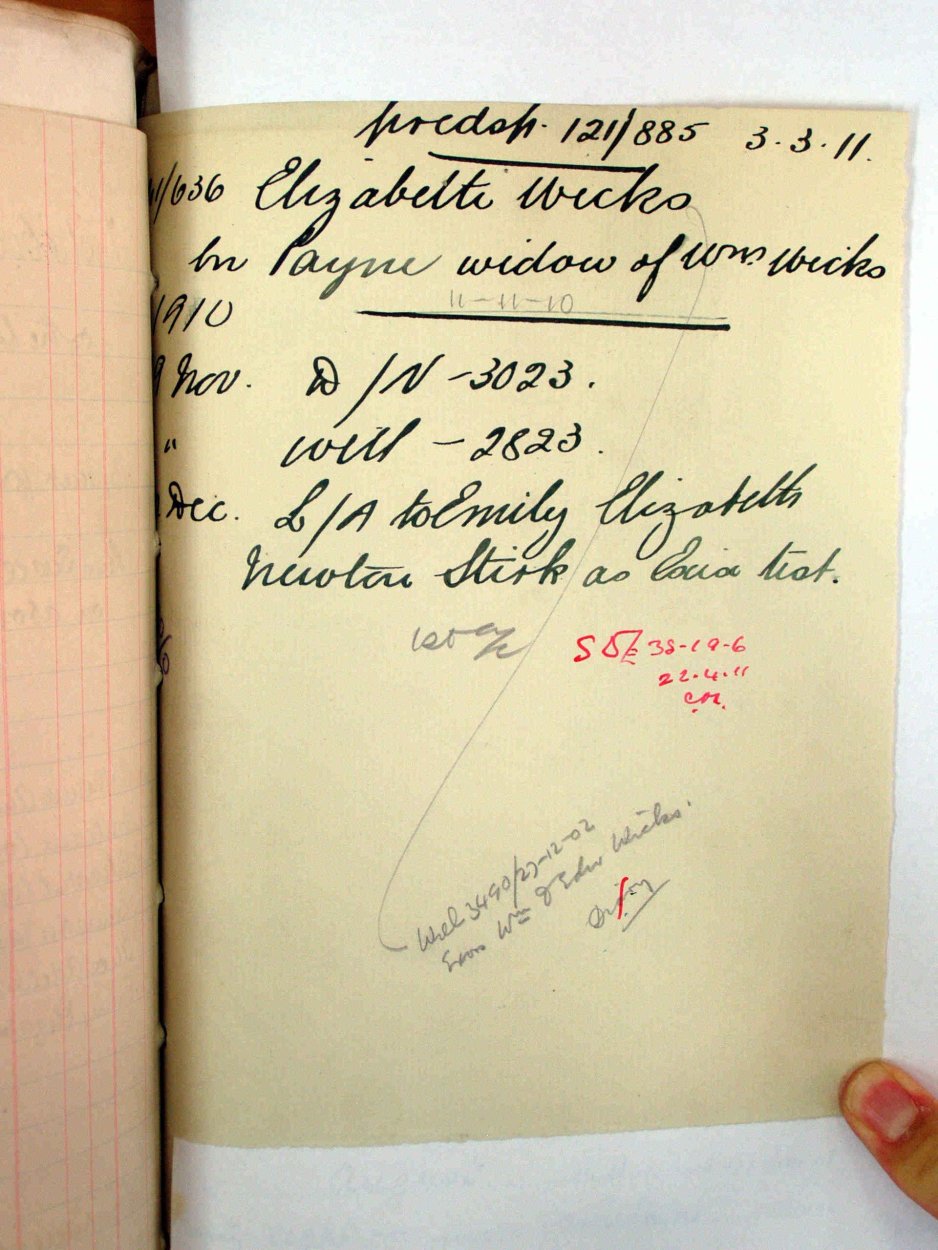 predsh. 121/885 3.3.11.
1/636 Elizabeth Wicks
bn Payne widow of Wm Wicks
11-11-10
1910
9 Nov. D/N - 3023.
" will - 2823.
Dec. L/A to Emily Elizabeth
Newton Stirk as Exix test.
38-19-6
22.4.11
Will 3490/27-12-02
Exors Wm & Edw Wicks.